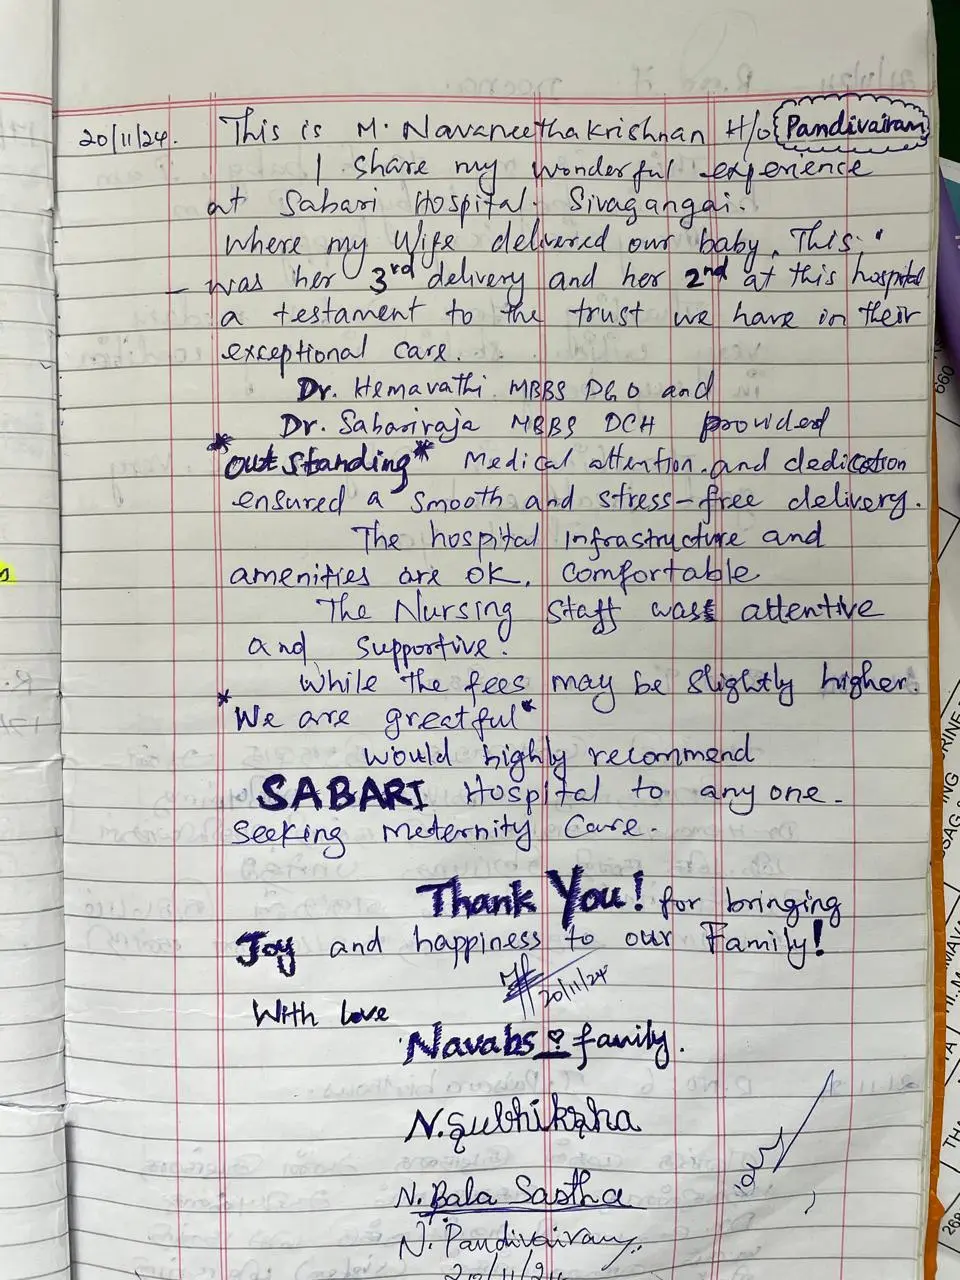 20/11/24. This is M. Navaneethakrishnan H/o Pandivairam
I share my wonderful experience
at Sabari Hospital. Sivagangai.
Where my Wife delivered our baby. This
- was her 3rd delivery and her 2nd at this hospital
a testament to the trust we have in their
exceptional care.
Dr. Hemavathi MBBS DGO and
Dr. Sabariraja MBBS DCH provided
*outstanding* Medical attention and dedication
ensured a smooth and stress-free delivery.
The hospital infrastructure and
amenities are OK, comfortable
The Nursing staff was attentive
and supportive.
While the fees may be slightly higher.
*We are greatful*
would highly recommend
SABARI Hospital to any one.
Seeking Meternity Care.
Thank You! for bringing
Joy and happiness to our Family!
20/11/24
With love
Navabs family.
N. Subhiksha
N. Bala Sastha
N. Pandivairam
20/11/24